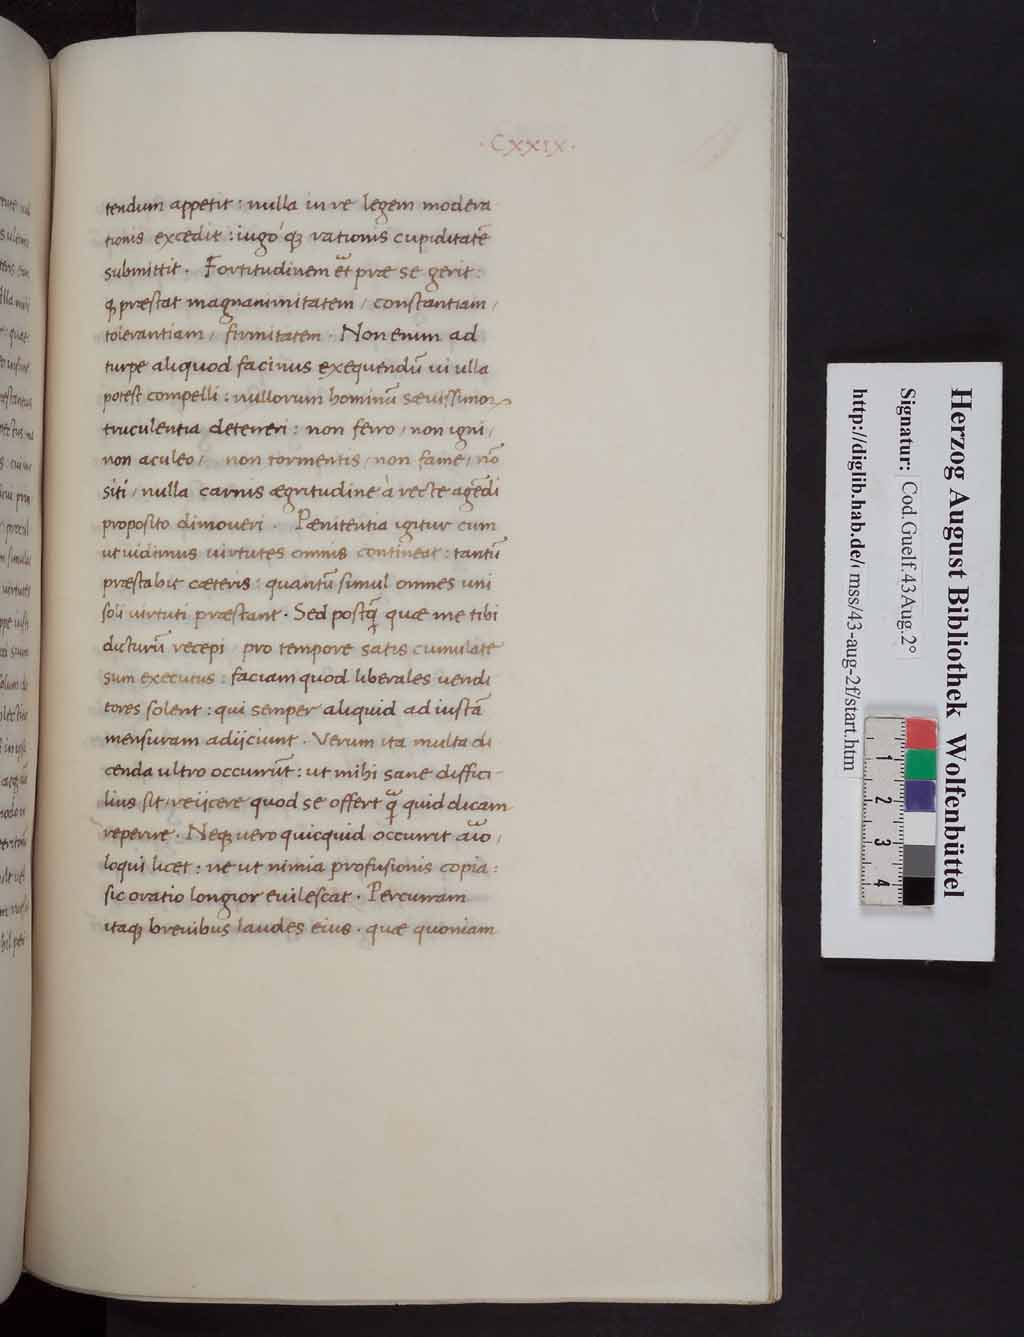 ·CXXIX·
tendum appetit : nulla in re legem modera
tionis excedit : iugo q₃ rationis cupiditatē
submittit . Fortitudinem et præ se gerit :
q præstat magnanimitatem / constantiam /
tolerantiam / firmitatem . Non enim ad
turpe aliquod facinus exequendū ui ulla
potest compelli : nullorum hominū sæuissimoꝝ
truculentia deterreri : non ferro / non igni /
non aculeo / non tormentis / non fame / nō
siti / nulla carnis ægritudine à recte agēdi
proposito dimoueri . Pænitentia igitur cum
ut uidimus uirtutes omnis contineat : tantū
præstabit cæteris : quantū simul omnes uni
soli uirtuti præstant . Sed postq̄ quæ me tibi
dicturū recepi pro tempore satis cumulate
sum executus : faciam quod liberales uendi
tores solent : qui semper aliquid ad iustā
mensuram adijciunt . Verum ita multa di
cenda ultro occurrūt : ut mihi sane diffici-
lius sit reijcere quod se offert q̄ quid dicam
reperire . Neq₃ uero quicquid occurrit aīo /
loqui licet : ne ut nimia profusionis copia :
sic oratio longior euilescat . Percurram
itaq₃ breuibus laudes eius . quæ quoniam
Herzog August Bibliothek Wolfenbüttel
Signatur: Cod.Guelf.43Aug.2°
http://diglib.hab.de/ mss/43-aug-2f/start.htm
1 2 3 4